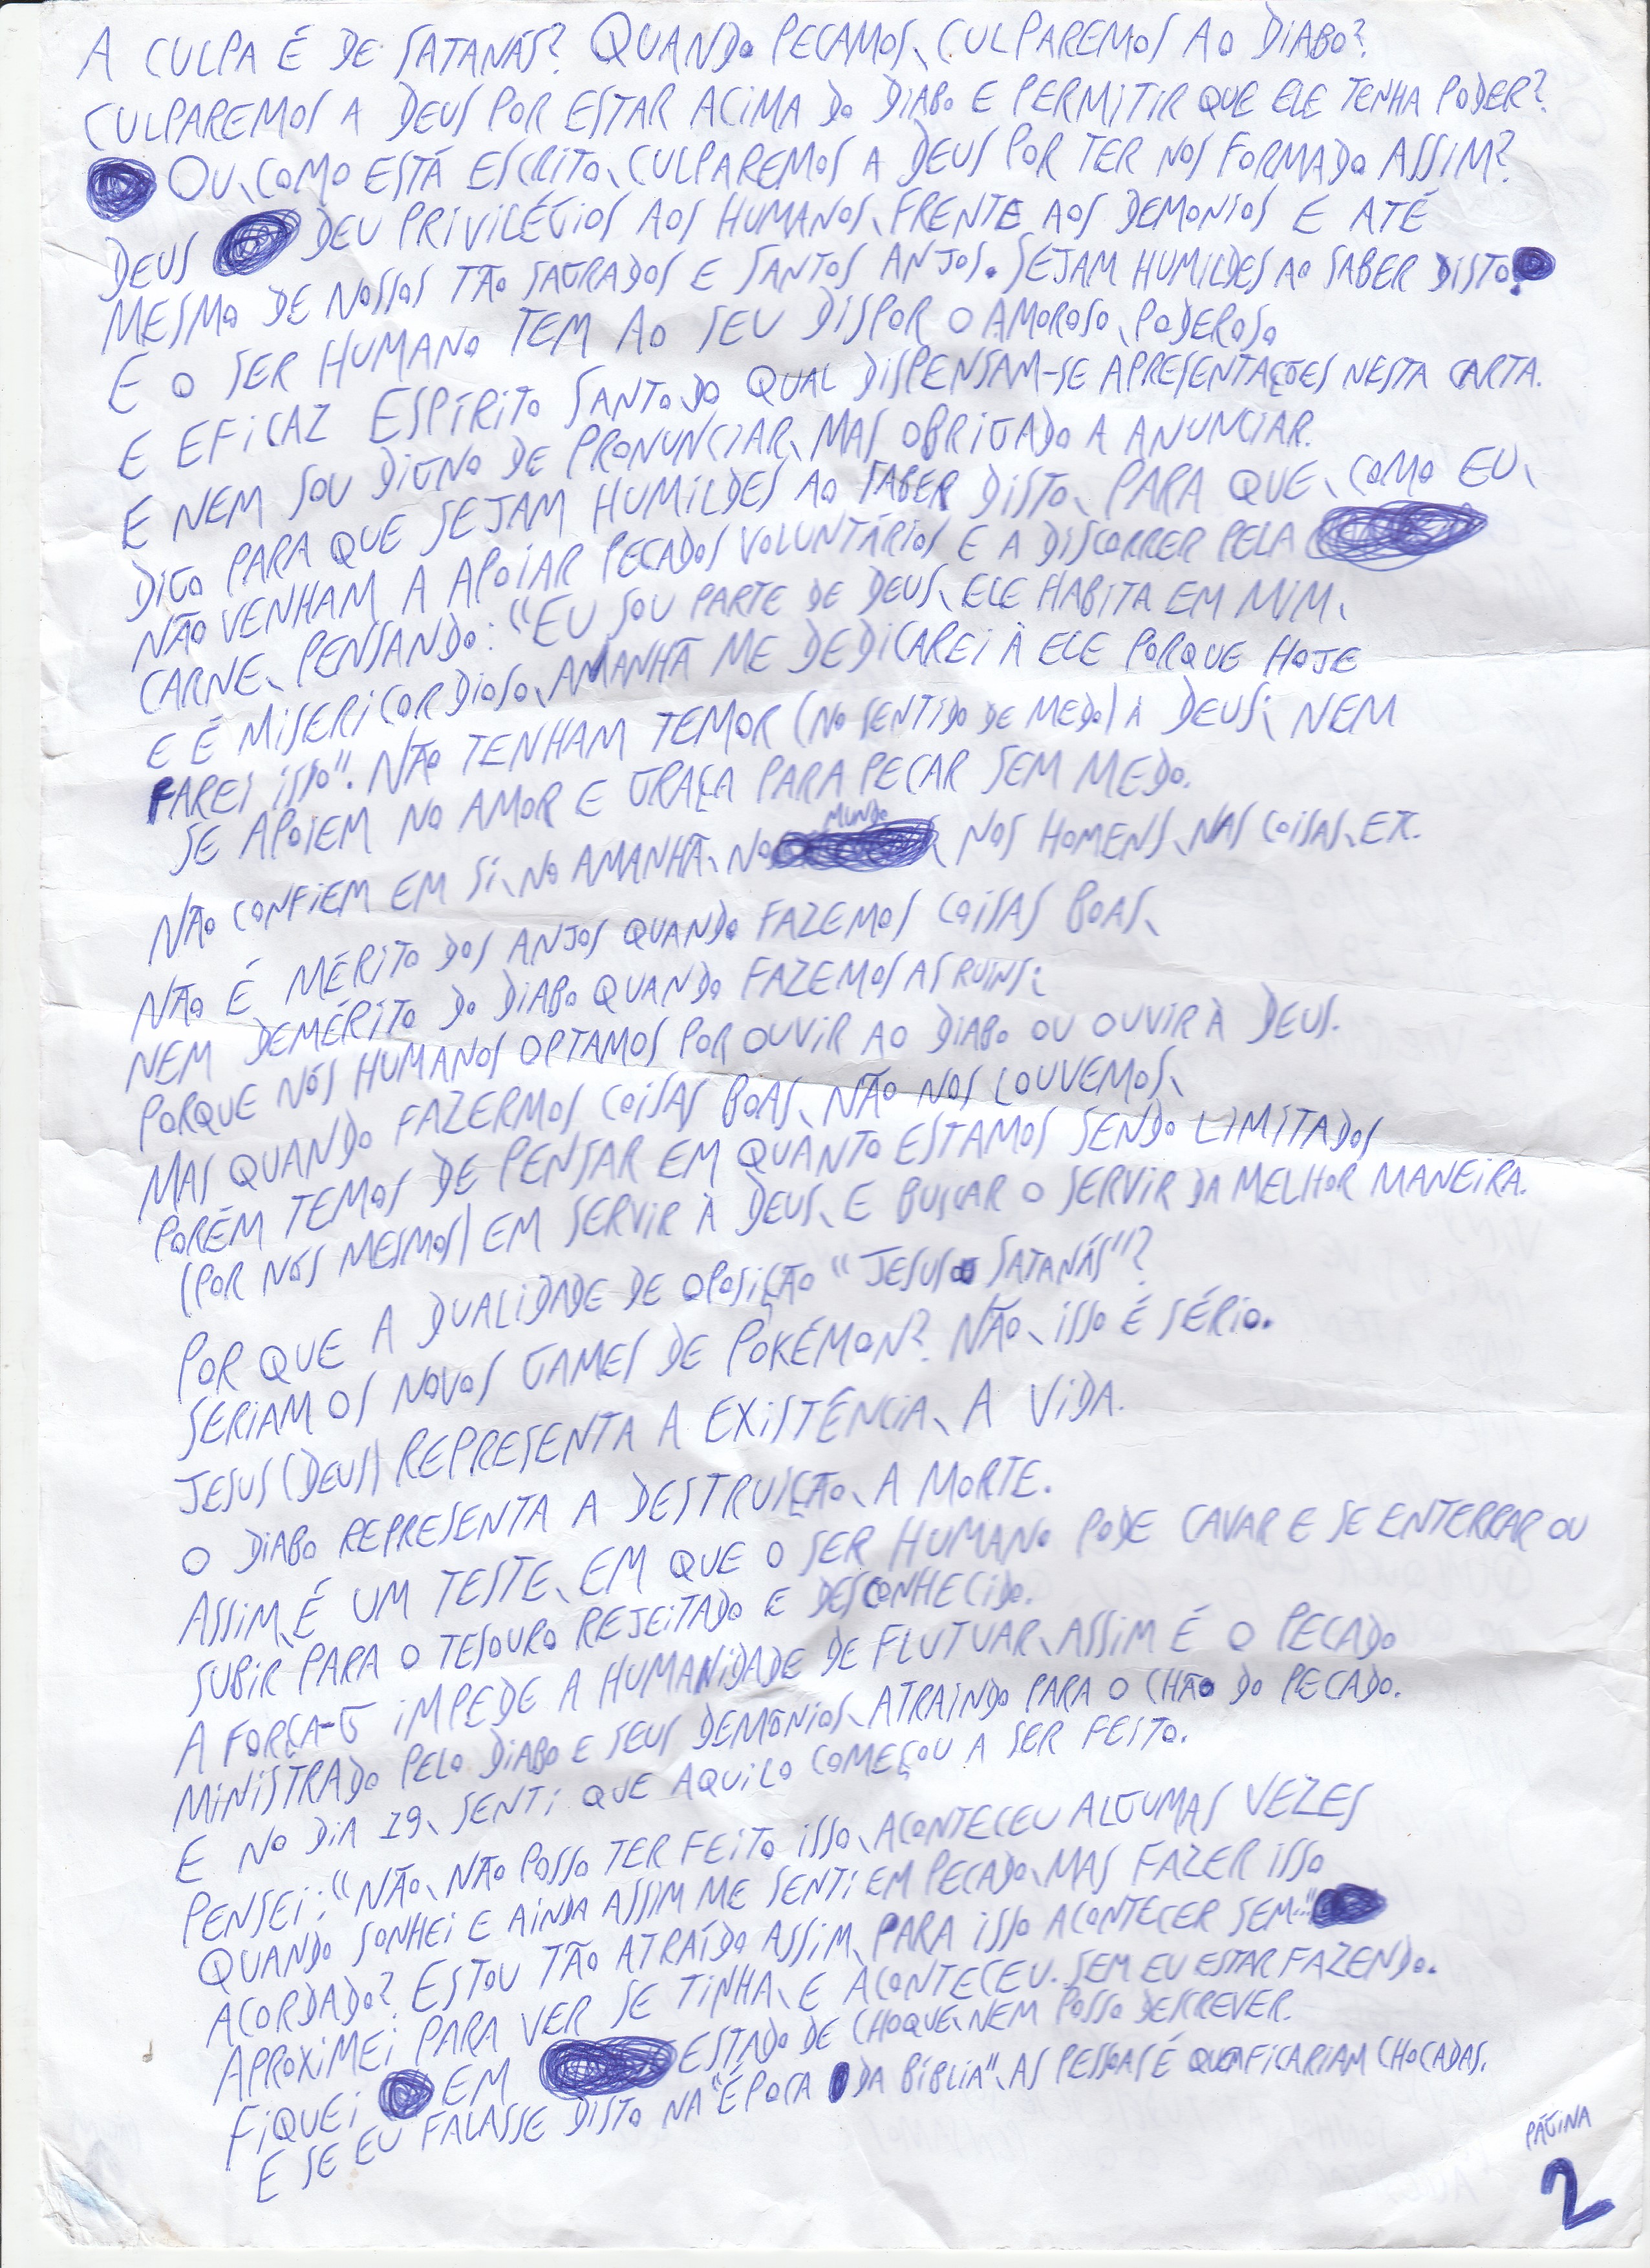 A CULPA É DE SATANÁS? QUANDO PECAMOS, CULPAREMOS AO DIABO?
CULPAREMOS A DEUS POR ESTAR ACIMA DO DIABO E PERMITIR QUE ELE TENHA PODER?
OU, COMO ESTÁ ESCRITO, CULPAREMOS A DEUS POR TER NOS FORMADO ASSIM?
DEUS DEU PRIVILÉGIOS AOS HUMANOS, FRENTE AOS DEMONIOS E ATÉ
MESMO DE NOSSOS TÃO SAGRADOS E SANTOS ANJOS. SEJAM HUMILDES AO SABER DISTO!
E O SER HUMANO TEM AO SEU DISPOR O AMOROSO, PODEROSO
E EFICAZ ESPÍRITO SANTO, DO QUAL DISPENSAM-SE APRESENTAÇÕES NESTA CARTA.
E NEM SOU DIGNO DE PRONUNCIAR, MAS OBRIGADO A ANUNCIAR.
DIGO PARA QUE SEJAM HUMILDES AO SABER DISTO, PARA QUE, COMO EU,
NÃO VENHAM A APOIAR PECADOS VOLUNTÁRIOS E A DISCORRER PELA
CARNE, PENSANDO: "EU SOU PARTE DE DEUS, ELE HABITA EM MIM,
E É MISERICORDIOSO, AMANHÃ ME DEDICAREI À ELE PORQUE HOJE
FAREI ISSO". NÃO TENHAM TEMOR (NO SENTIDO DE MEDO) À DEUS; NEM
SE APOIEM NO AMOR E GRAÇA PARA PECAR SEM MEDO.
NÃO CONFIEM EM SI, NO AMANHÃ, NO MUNDO, NOS HOMENS, NAS COISAS, ETC.
NÃO É MÉRITO DOS ANJOS QUANDO FAZEMOS COISAS BOAS,
NEM DEMÉRITO DO DIABO QUANDO FAZEMOS AS RUINS;
PORQUE NÓS HUMANOS OPTAMOS POR OUVIR AO DIABO OU OUVIR À DEUS.
MAS QUANDO FAZERMOS COISAS BOAS, NÃO NOS LOUVEMOS,
PORÉM TEMOS DE PENSAR EM QUANTO ESTAMOS SENDO LIMITADOS
(POR NÓS MESMOS) EM SERVIR À DEUS, E BUSCAR O SERVIR DA MELHOR MANEIRA.
POR QUE A DUALIDADE DE OPOSIÇÃO "JESUS SATANÁS"?
SERIAM OS NOVOS GAMES DE POKÉMON? NÃO, ISSO É SÉRIO.
JESUS (DEUS) REPRESENTA A EXISTÊNCIA, A VIDA.
O DIABO REPRESENTA A DESTRUIÇÃO, A MORTE.
ASSIM, É UM TESTE, EM QUE O SER HUMANO PODE CAVAR E SE ENTERRAR OU
SUBIR PARA O TESOURO REJEITADO E DESCONHECIDO.
A FORÇA-G IMPEDE A HUMANIDADE DE FLUTUAR, ASSIM É O PECADO
MINISTRADO PELO DIABO E SEUS DEMÔNIOS, ATRAINDO PARA O CHÃO DO PECADO.
E NO DIA 19, SENTI QUE AQUILO COMEÇOU A SER FEITO.
PENSEI: "NÃO, NÃO POSSO TER FEITO ISSO, ACONTECEU ALGUMAS VEZES
QUANDO SONHEI E AINDA ASSIM ME SENTI EM PECADO, MAS FAZER ISSO
ACORDADO? ESTOU TÃO ATRAÍDO ASSIM, PARA ISSO ACONTECER SEM..."
APROXIMEI PARA VER SE TINHA, E ACONTECEU. SEM EU ESTAR FAZENDO.
FIQUEI EM ESTADO DE CHOQUE, NEM POSSO DESCREVER.
E SE EU FALASSE DISTO NA "ÉPOCA DA BÍBLIA", AS PESSOAS É QUE FICARIAM CHOCADAS.
PÁGINA
2